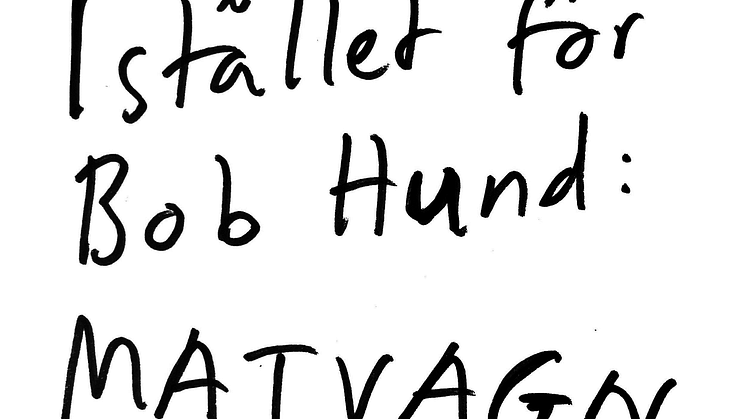 Istället för
Bob Hund:
MATVAGN